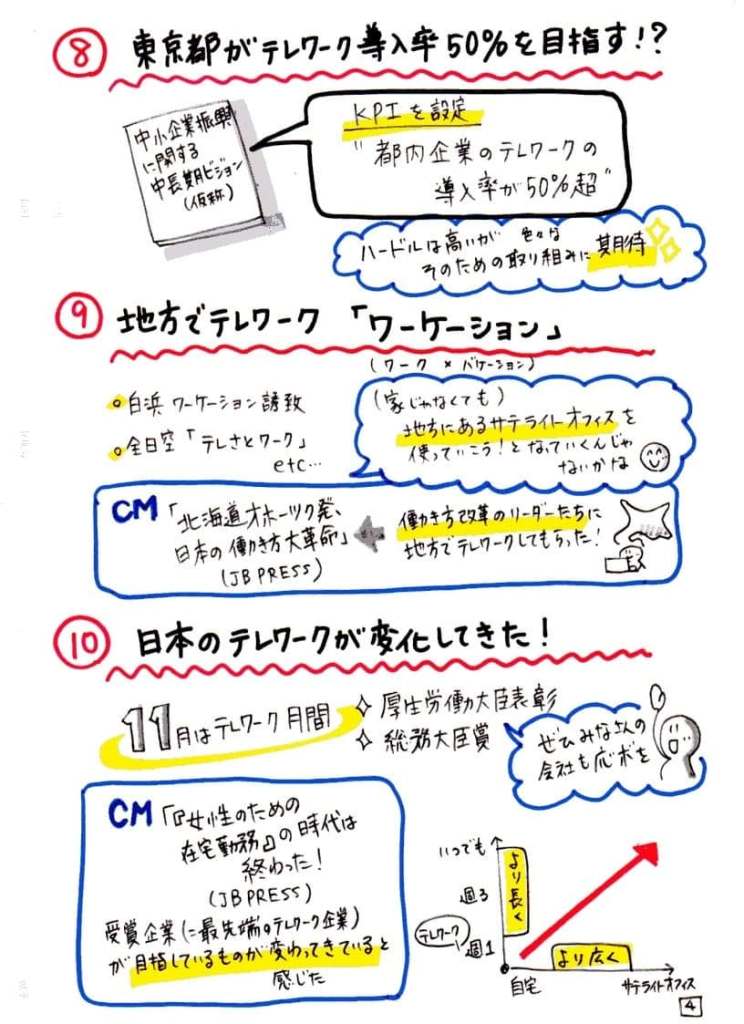 ⑧ 東京都がテレワーク導入率50%を目指す!?
中小企業振興
に関する
中長期ビジョン
(仮称)
KPIを設定
"都内企業のテレワークの
導入率が50%超"
ハードルは高いが 色々な
そのための取り組みに期待
⑨ 地方でテレワーク 「ワーケーション」
(ワーク × バケーション)
白浜 ワーケーション誘致
全日空「テレさとワーク」
etc…
(家じゃなくても)
地方にあるサテライトオフィスを
使っていこう!となっていくんじゃ
ないかな
CM「北海道オホーツク発、
日本の働き方大革命」
(JBPRESS)
働き方改革のリーダーたちに
地方でテレワークしてもらった!
⑩ 日本のテレワークが変化してきた!
11月はテレワーク月間
厚生労働大臣表彰
総務大臣賞
ぜひみなさんの
会社も応募を
CM「『女性のための
在宅勤務』の時代は
終わった!
(JBPRESS)
受賞企業(=最先端のテレワーク企業)
が目指しているものが変わってきていると
感じた
いつでも
週3
テレワーク
週1
より長く
より広く
自宅
サテライトオフィス
4